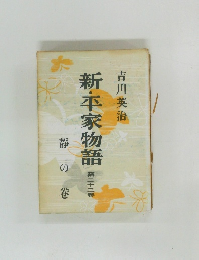 吉川英治
新・平家物語
第二十二巻
静の巻